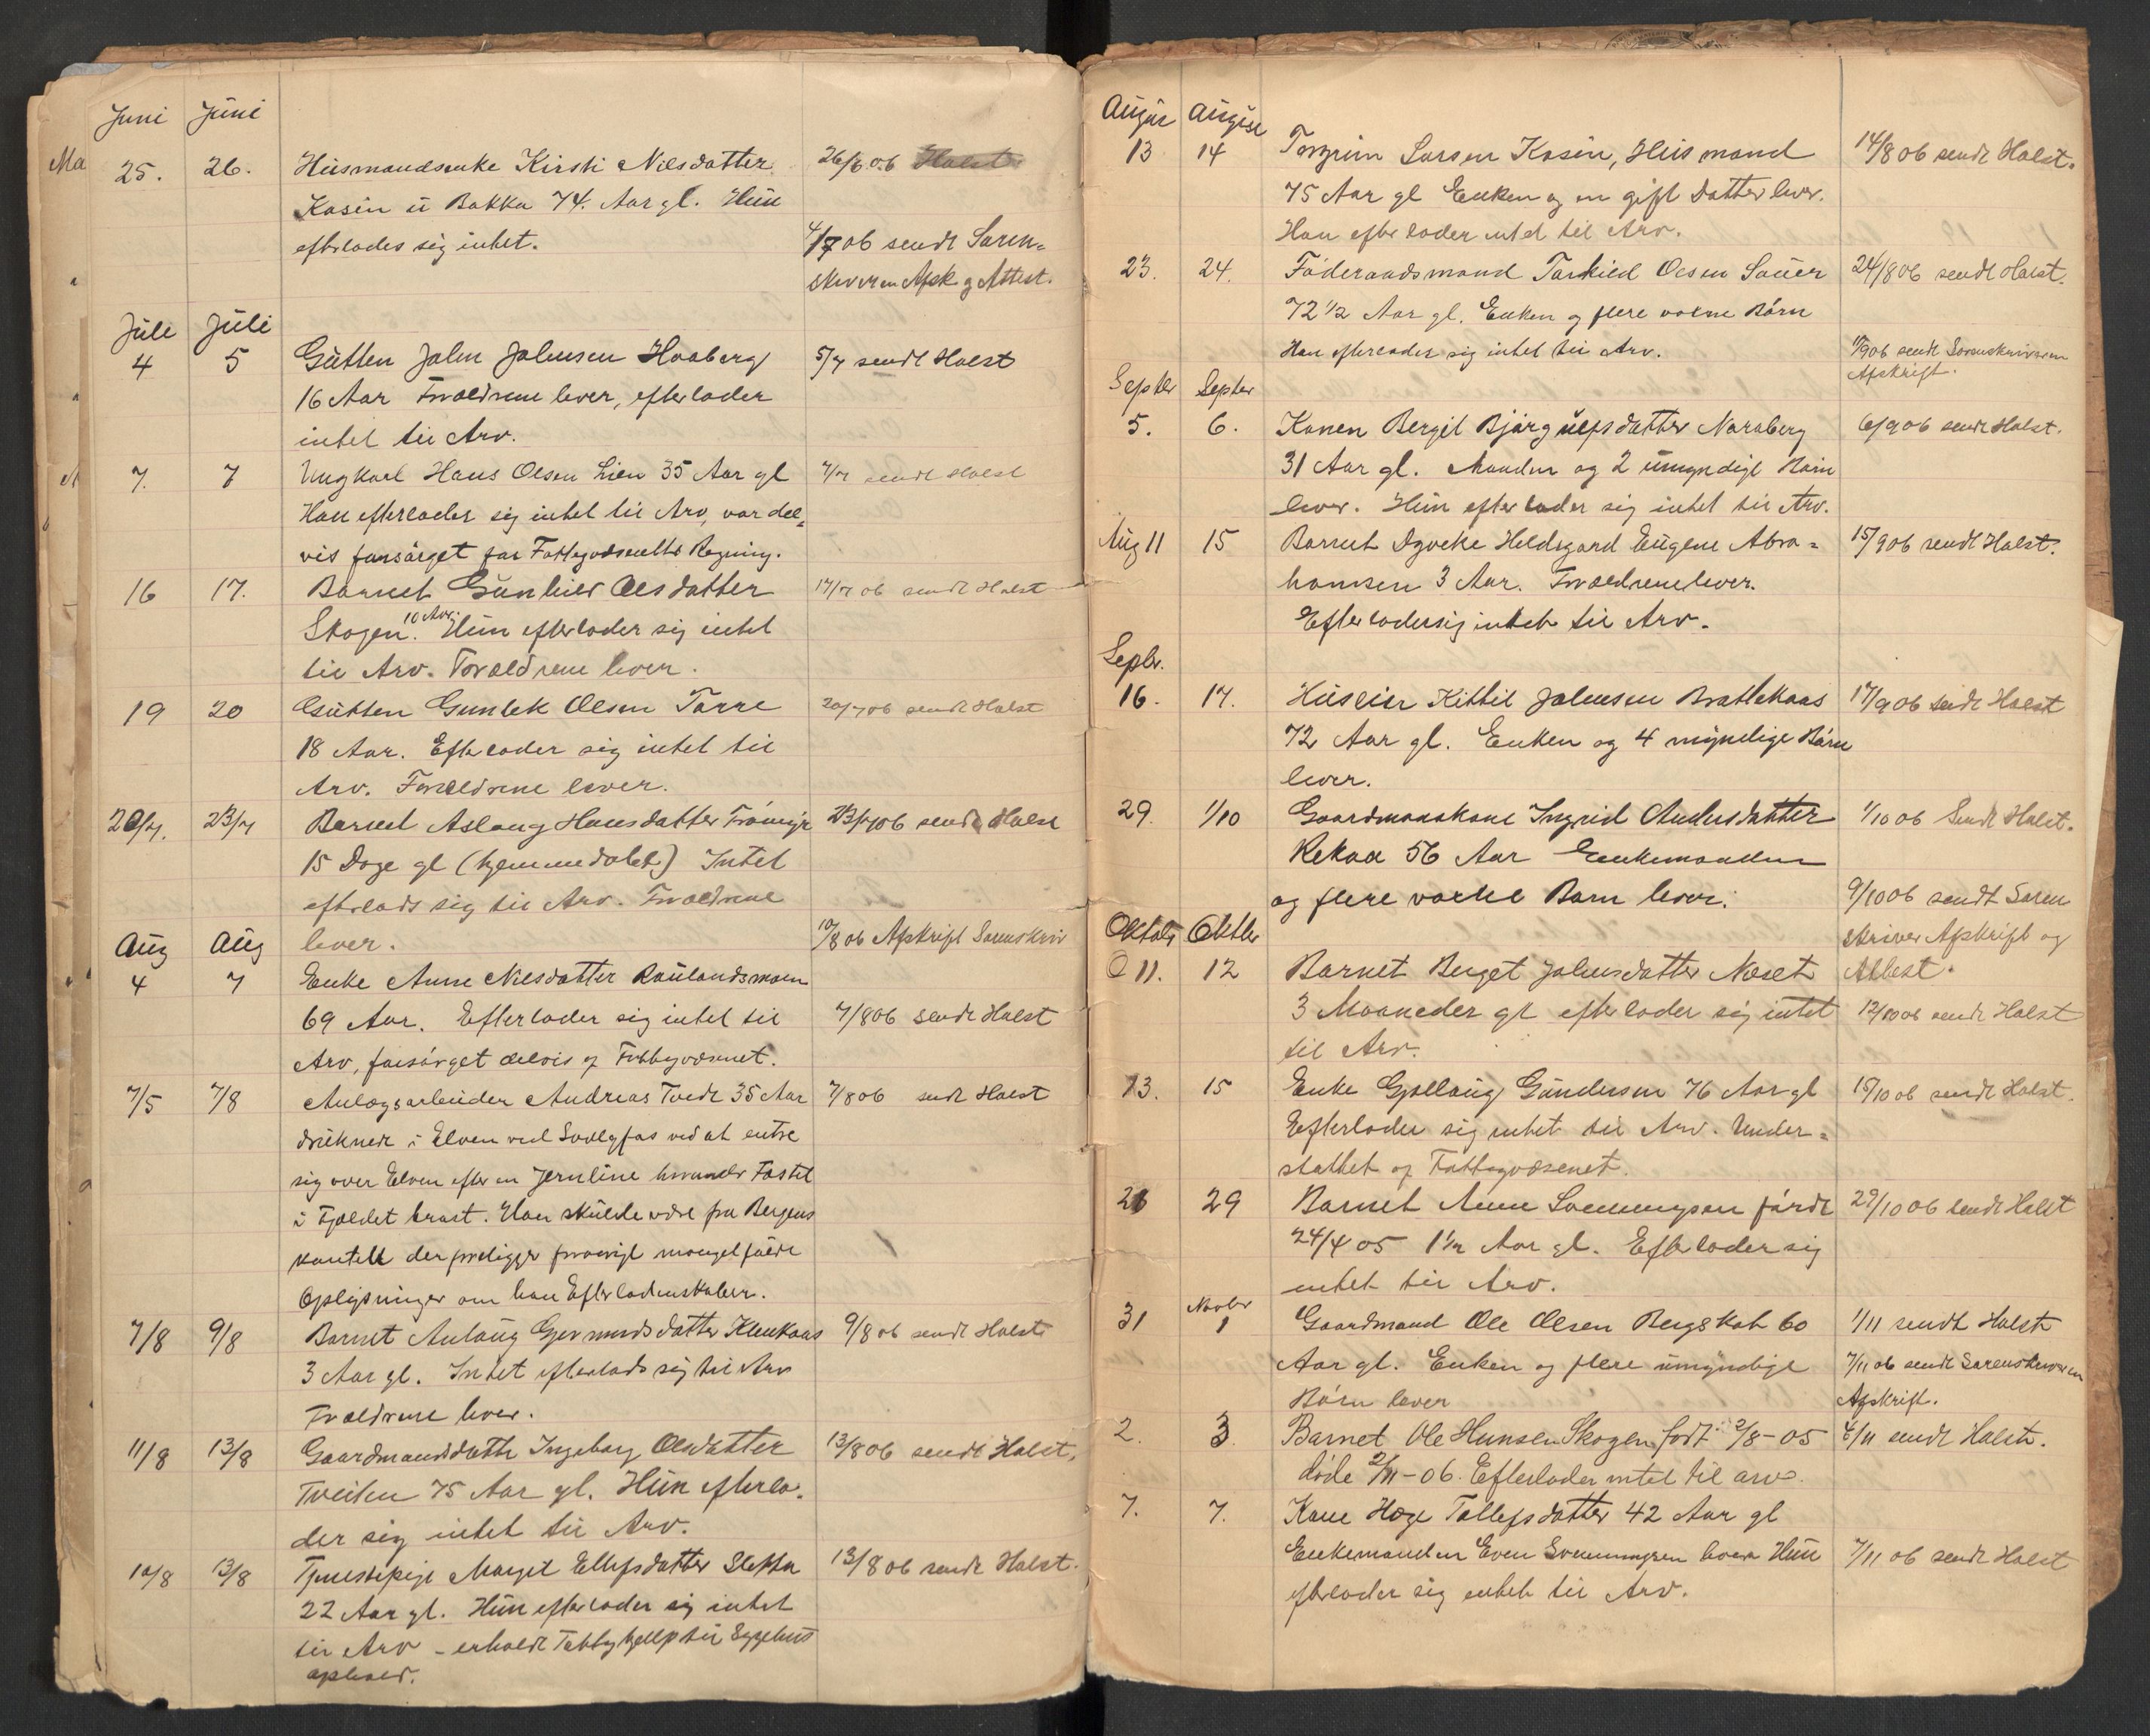 Juni Juni
25. 26. Husmandsenke Kirsti Nilsdatter 26/6.06 Halst
Kasin u Bakka 74. Aar gl. Hun
efterlades sig intet. 4/7 06 sendt Soren=
skriveren Afsk og Attest.
Juli Juli
4 5 Gutten John Johnsen Haaberg 5/7 sendt Halst
16 Aar Forældrene lever, efterlader
intet til Arv.
7. 7 Ungkarl Hans Olsen Lien 35 Aar gl 7/7 sendt Halst
Han efterlader sig intet til Arv, var del=
vis forsørget for Fattigvæsenets Regning.
16 17. Barnet Gunhild Olsdatter 17/7 06 sendt Halst
Skogen. 10 Aar. Hun efterlader sig intet
til Arv. Forældrene lever.
19 20 Gutten Gunlek Olsen Torre 20/7 06 sendt Halst
18 Aar. Efterlader sig intet til
Arv. Forældrene lever.
20/7. 23/7 Barnet Aslaug Hansdatter 23/7 06 sendt Halst
15 Dage gl (hjemmedøbt) Intet
efterlads sig til Arv. Forældrene
lever. 10/8 06 Afskrift Sorenskriv
Aug Aug
4 7 Enke Anne Nilsdatter Raulandsmoen
69 Aar. Efterlader sig intet til 7/8 06 sendt Halst
Arv, forsørget delvis af Fattigvæsenet.
7/5 7/8 Anlægsarbeider Andreas Tvedt 35 Aar 7/8 06 sendt Halst
druknede i Elven ved Svælgfos ved at entre
sig over Elven efter en Jernline hvorunder Fæstet
i Fjeldet brast. Han skulde være fra Bergens
kanten der foreligger forøvrigt mangelfulde
Oplysninger om hans Efterladenskaber.
7/8 9/8 Barnet Anlaug Germundsdatter Klevkaas 9/8 06 sendt Halst
3 Aar gl. Intet efterlads sig til Arv
Forældrene lever.
11/8 13/8 Gaardmandsdatter Ingeborg Olsdatter 13/8 06 sendt Halst.
Tveiten 75 Aar gl. Hun efterla=
der sig intet til Arv.
10/8 13/8 Tjenestepige Margit Ellefsdatter Sletta 13/8 06 sendt Halst.
22 Aar gl. Hun efterlader sig intet
til Arv - erholdt Fattighjelp til Sygehus
ophold.
August August
13 14 Torgrim Larsen Kasin, Husmand 14/8 06 sendt Halst.
75 Aar gl Enken og en gift Datter lever.
Han efterlader intet til Arv.
23. 24. Føderaadsmand Torkild Olsen Sauer 24/8 06 sendt Halst.
72 1/2 Aar gl. Enken og flere voxne Børn
Han efterlader sig intet til Arv. 11/9 06 sendt Sorenskriveren
Afskrift.
Septbr Septbr
5. 6. Konen Bergit Bjørgulfsdatter Noraberg 6/9 06 sendt Halst.
31 Aar gl. Manden og 2 umyndige Børn
lever. Hun efterlader sig intet til Arv.
Aug 11 15 Barnet Dyveke Hildegard Eugene Abra= 15/9 06 sendt Halst.
hamsen 3 Aar. Forældrene lever.
Efterlader sig intet til Arv.
Septr.
16. 17. Huseier Kittil Johnsen Brattekaas 17/9 06 sendt Halst
72 Aar gl. Enken og 4 myndige Børn
lever.
29. 1/10 Gaardmandskone Ingrid Andersdatter 1/10 06 Sendt Halst.
Rekaa 56 Aar Enkemanden
og flere voxne Børn lever. 9/10 06 sendt Soren
skriver Afskrift og
Oktobr Oktbr
11. 12 Barnet Berget Johnsdatter Næset Attest.
3 Maaneder gl efterlader sig intet 12/10 06 sendt Halst
til Arv.
13. 15 Enke Gjellaug Gundersen 76 Aar gl 15/10 06 sendt Halst.
Efterlader sig intet til Arv. Under=
støttet af Fattigvæsenet.
26 29 Barnet Anne Svenningsen født 29/10 06 sendt Halst
24/4 05 1 1/2 Aar gl. Efterlader sig
intet til Arv.
31 Novbr 1 Gaardmand Ole Olsen Bergskot 60 1/11 sendt Halst
Aar gl. Enken og flere umyndige 7/11 06 sendt Sorenskriveren
Børn lever Afskrift.
2. 3. Barnet Ole Hansen Skogen født 2/8-05 6/11 sendt Halst.
døde 2/11-06. Efterlader intet til arv.
7. 7. Kone Hæge Tollefsdatter 42 Aar gl
Enkemanden Even Svenningsen lever Hun 7/11 06 sendt Halst
efterlader sig intet til Arv.